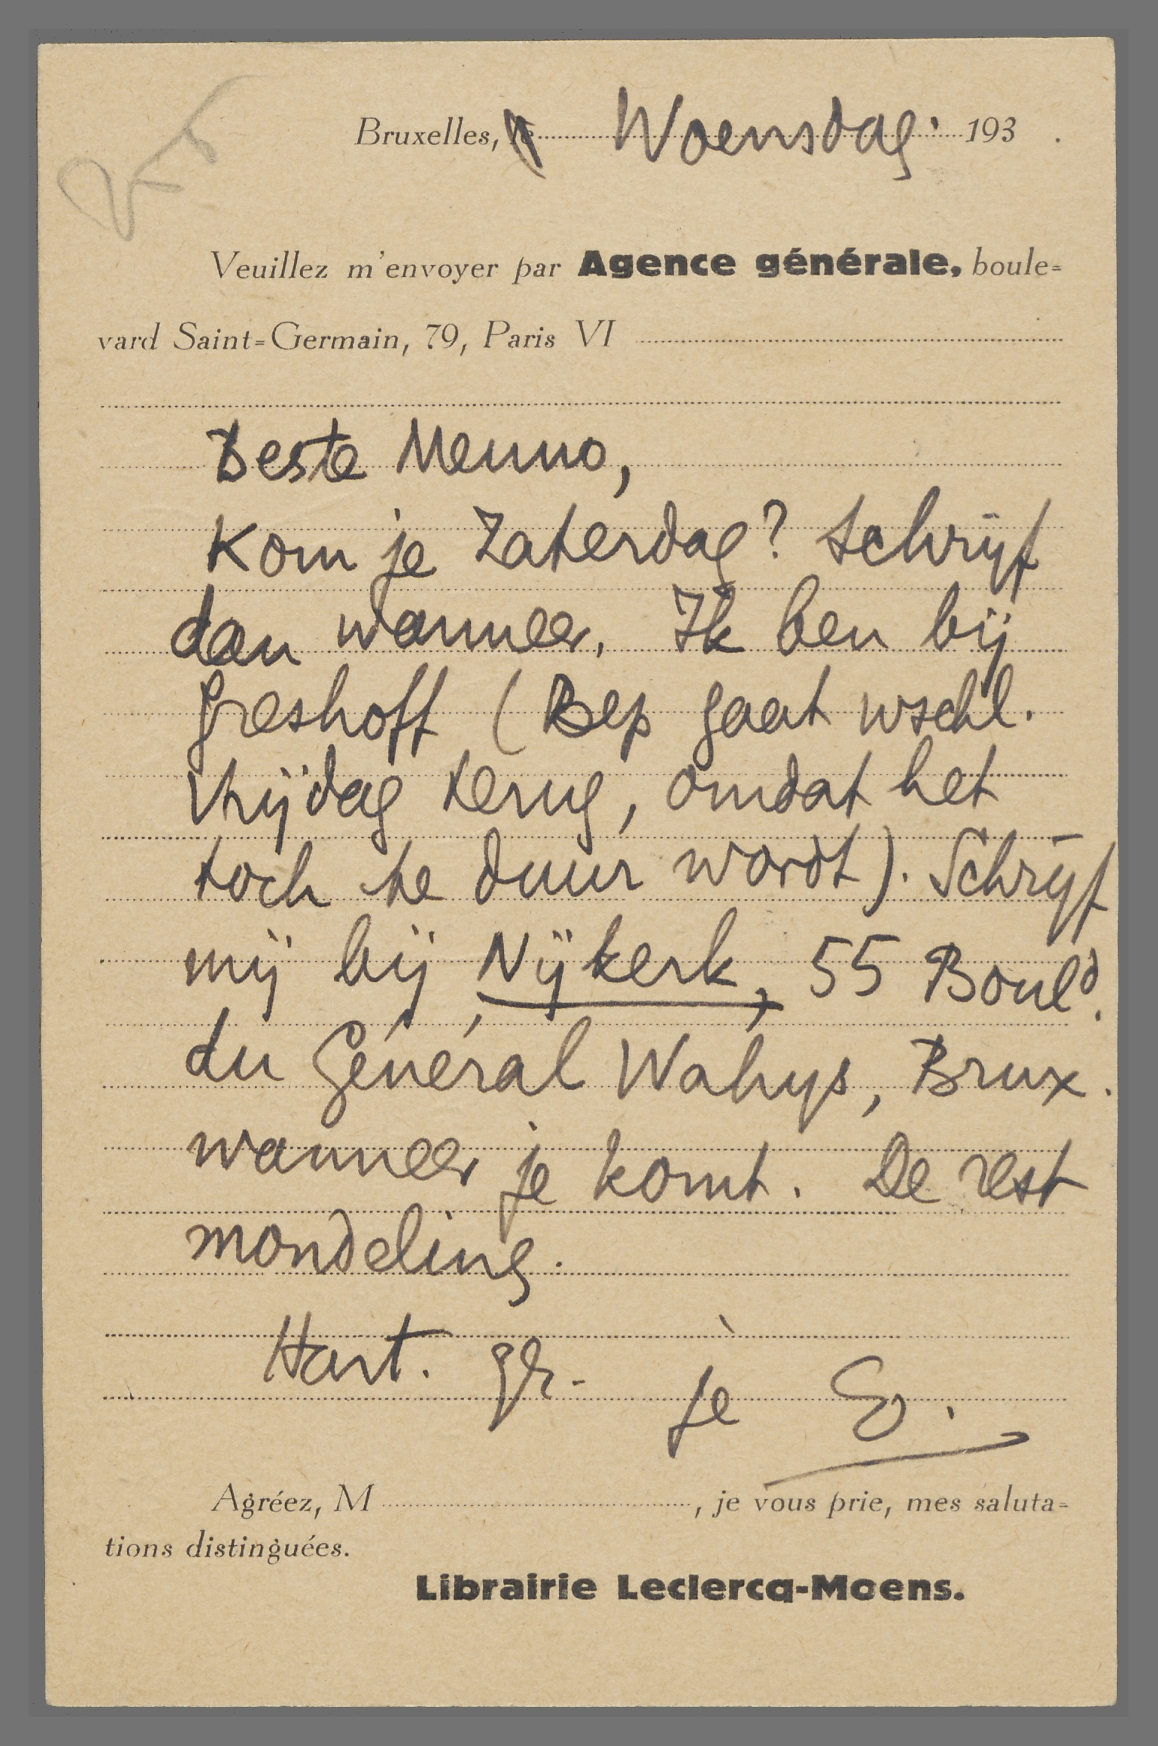 Bruxelles, le Woensdag. 193 .
Veuillez m'envoyer par Agence générale, boule=
vard Saint=Germain, 79, Paris VI
Beste Menno,
Kom je Zaterdag? Schrijf
dan wanneer. Ik ben bij
Greshoff (Bep gaat wschl.
Vrijdag terug, omdat het
toch te duur wordt). Schrijf
mij bij Nijkerk, 55 Bould.
du Général Wahys, Brux.
wanneer je komt. De rest
mondeling.
Hart. gr. je E.
Agréez, M , je vous prie, mes saluta=
tions distinguées.
Librairie Leclercq-Moens.